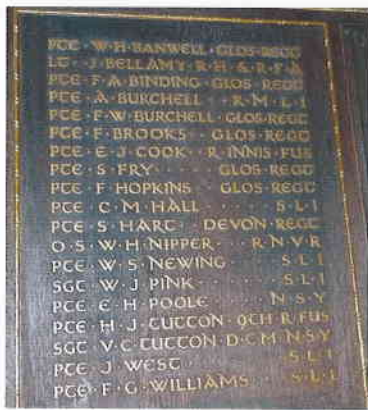 PTE · W · H · BANWELL · GLOS · REGT
LT · J · BELLAMY · R · H · & · R · F · A
PTE · F · A · BINDING · GLOS · REGT
PTE · A · BURCHELL · · R · M · L · I
PTE · F · W · BURCHELL · GLOS · REGT
PTE · F · BROOKS · · GLOS · REGT
PTE · E · J · COOK · · R · INNIS · FUS
PTE · S · FRY · · · · GLOS · REGT
PTE · F · HOPKINS · · GLOS · REGT
PTE · C · M · HALL · · · · S · L · I
PTE · S · HART · · DEVON · REGT
O · S · W · H · NIPPER · · · R · N · V · R
PTE · W · S · NEWING · · · S · L · I
SGT · W · J · PINK · · · · S · L · I
PTE · E · H · POOLE · · · · N · S · Y
PTE · H · J · TUTTON · 9TH · R · FUS
SGT · V · C · TUTTON · D · C · M · N · S · Y
PTE · J · WEST · · · · · S · L · I
PTE · F · G · WILLIAMS · · · S · L · I